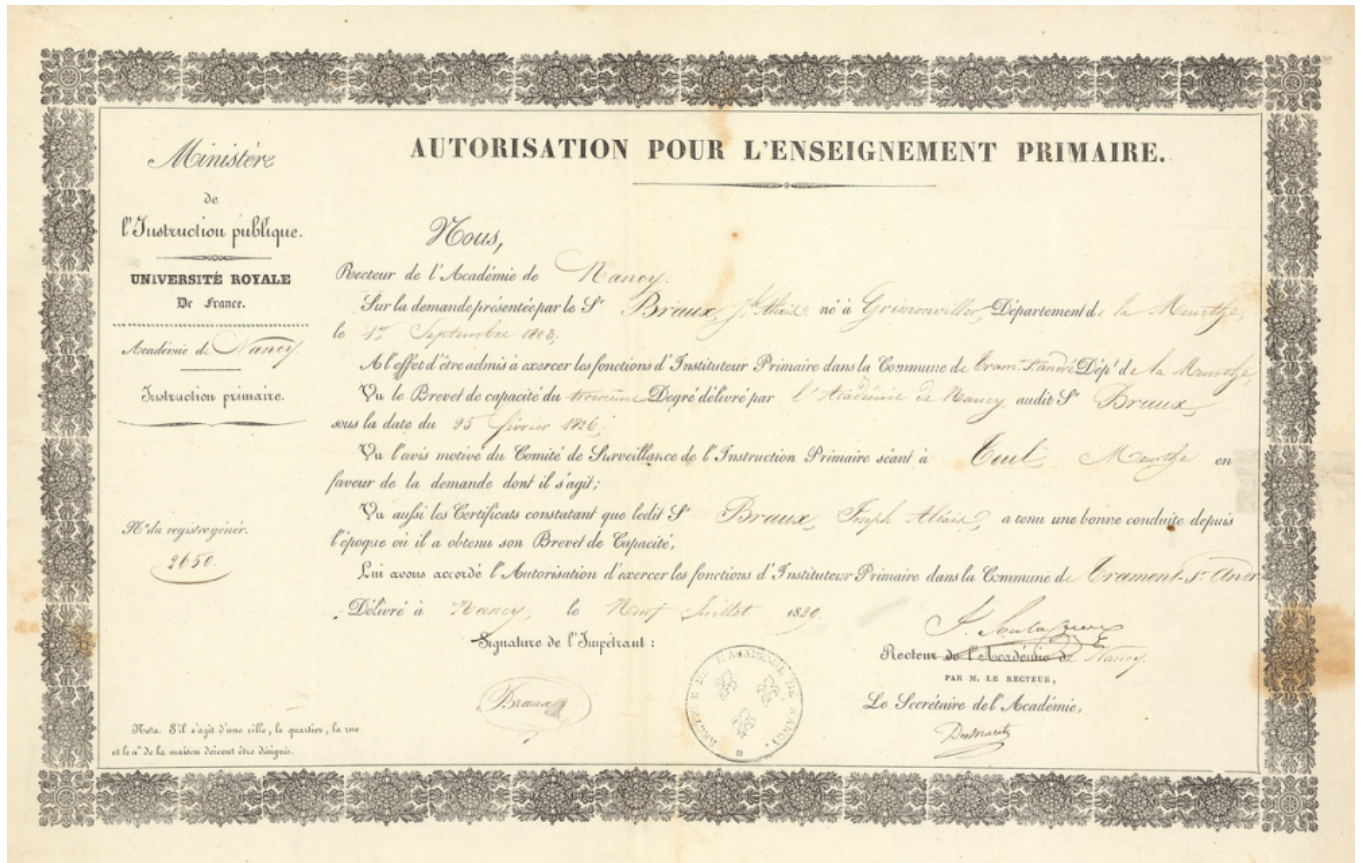 AUTORISATION POUR L'ENSEIGNEMENT PRIMAIRE.
Ministère
de
l'Instruction publique.
UNIVERSITÉ ROYALE
De France.
Académie de Nancy.
Instruction primaire.
N.º du registre génér.
2650.
Nota. S'il s'agit d'une ville, le quartier, la rue
et le n.º de la maison doivent être désignés.
Nous,
Recteur de l'Académie de Nancy.
Sur la demande présentée par le S.r Braux, J.ph né à Grimonviller, Département de la Meurthe,
le 1er Septembre 1803,
A l'effet d'être admis à exercer les fonctions d'Instituteur Primaire dans la Commune de Tram.t S.t andré Dép.t de la Meurthe,
Vu le Brevet de capacité du troisième Degré délivré par l'Académie de Nancy audit S.r Braux,
sous la date du 25 février 1826;
Vu l'avis motivé du Comité de Surveillance de l'Instruction Primaire séant à Toul, Meurthe en
faveur de la demande dont il s'agit;
Vu aussi les Certificats constatant que ledit S.r Braux, Joseph a tenu une bonne conduite depuis
l'époque où il a obtenu son Brevet de Capacité,
Lui avons accordé l'Autorisation d'exercer les fonctions d'Instituteur Primaire dans la Commune de Tramont-S.t Andr
Délivré à Nancy, le Neuf Juillet 1829.
Signature de l'Impétrant :
Braux
DE L'ACADÉMIE DE NANCY.
Recteur de l'Académie de Nancy.
PAR M. LE RECTEUR,
Le Secrétaire de l'Académie,